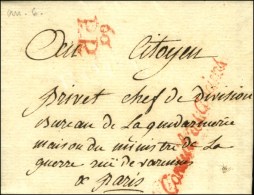 an. 6.
60
P.P.
Au Citoyen
Privet chef de division
Bureau de la gendarmerie
maison du ministre de la
guerre rue de varennes
a Paris